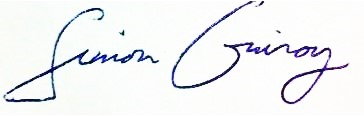 Simon Guiroy